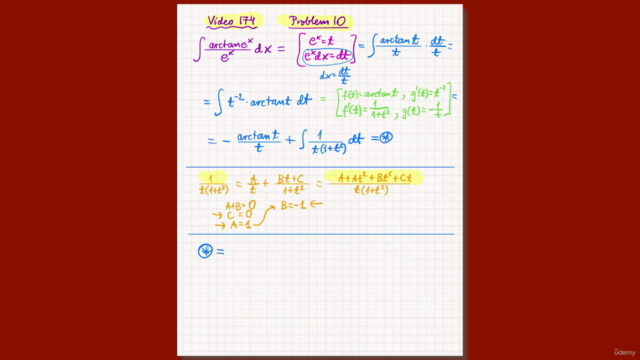 Video 174 Problem 10
∫ arctan eˣ / eˣ dx = [ eˣ = t, eˣdx = dt ] = ∫ arctan t / t · dt / t =
dx = dt / t
= ∫ t⁻² · arctan t dt = [ f(t) = arctan t, g'(t) = t⁻² ; f'(t) = 1 / (1+t²), g(t) = -1 / t ] =
= - arctan t / t + ∫ 1 / (t(1+t²)) dt = ⊛
1 / (t(1+t²)) = A / t + (Bt+C) / (1+t²) = (A + At² + Bt² + Ct) / (t(1+t²))
A+B = 0 B = -1 ←
→ C = 0
→ A = 1
⊛ =
ûdemy